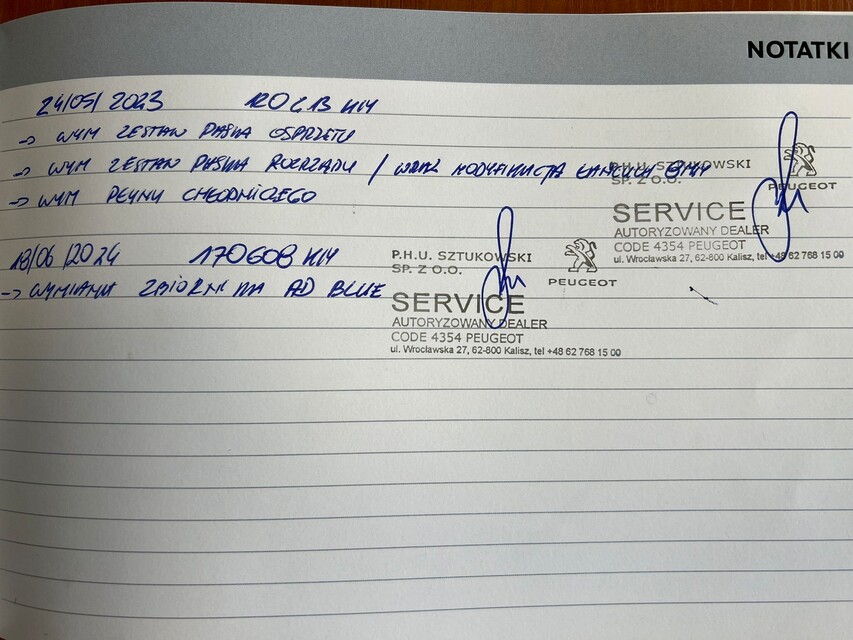 NOTATKI
24/05/2023 120213 KM
-> WYM ZESTAW PASKA OSPRZĘTU
-> WYM ZESTAW PASKA ROZRZĄDU / WRAZ MODYFIKACJA ŁAŃCUCH
-> WYM PŁYNU CHŁODNICZEGO
P.H.U. SZTUKOWSKI
SP. Z O.O.
PEUGEOT
SERVICE
AUTORYZOWANY DEALER
CODE 4354 PEUGEOT
ul. Wrocławska 27, 62-800 Kalisz, tel +48 62 768 15 00
18/06/2024 170608 KM
-> WYMIANA ZBIORNIKA AD BLUE
P.H.U. SZTUKOWSKI
SP. Z O.O.
PEUGEOT
SERVICE
AUTORYZOWANY DEALER
CODE 4354 PEUGEOT
ul. Wrocławska 27, 62-800 Kalisz, tel +48 62 768 15 00